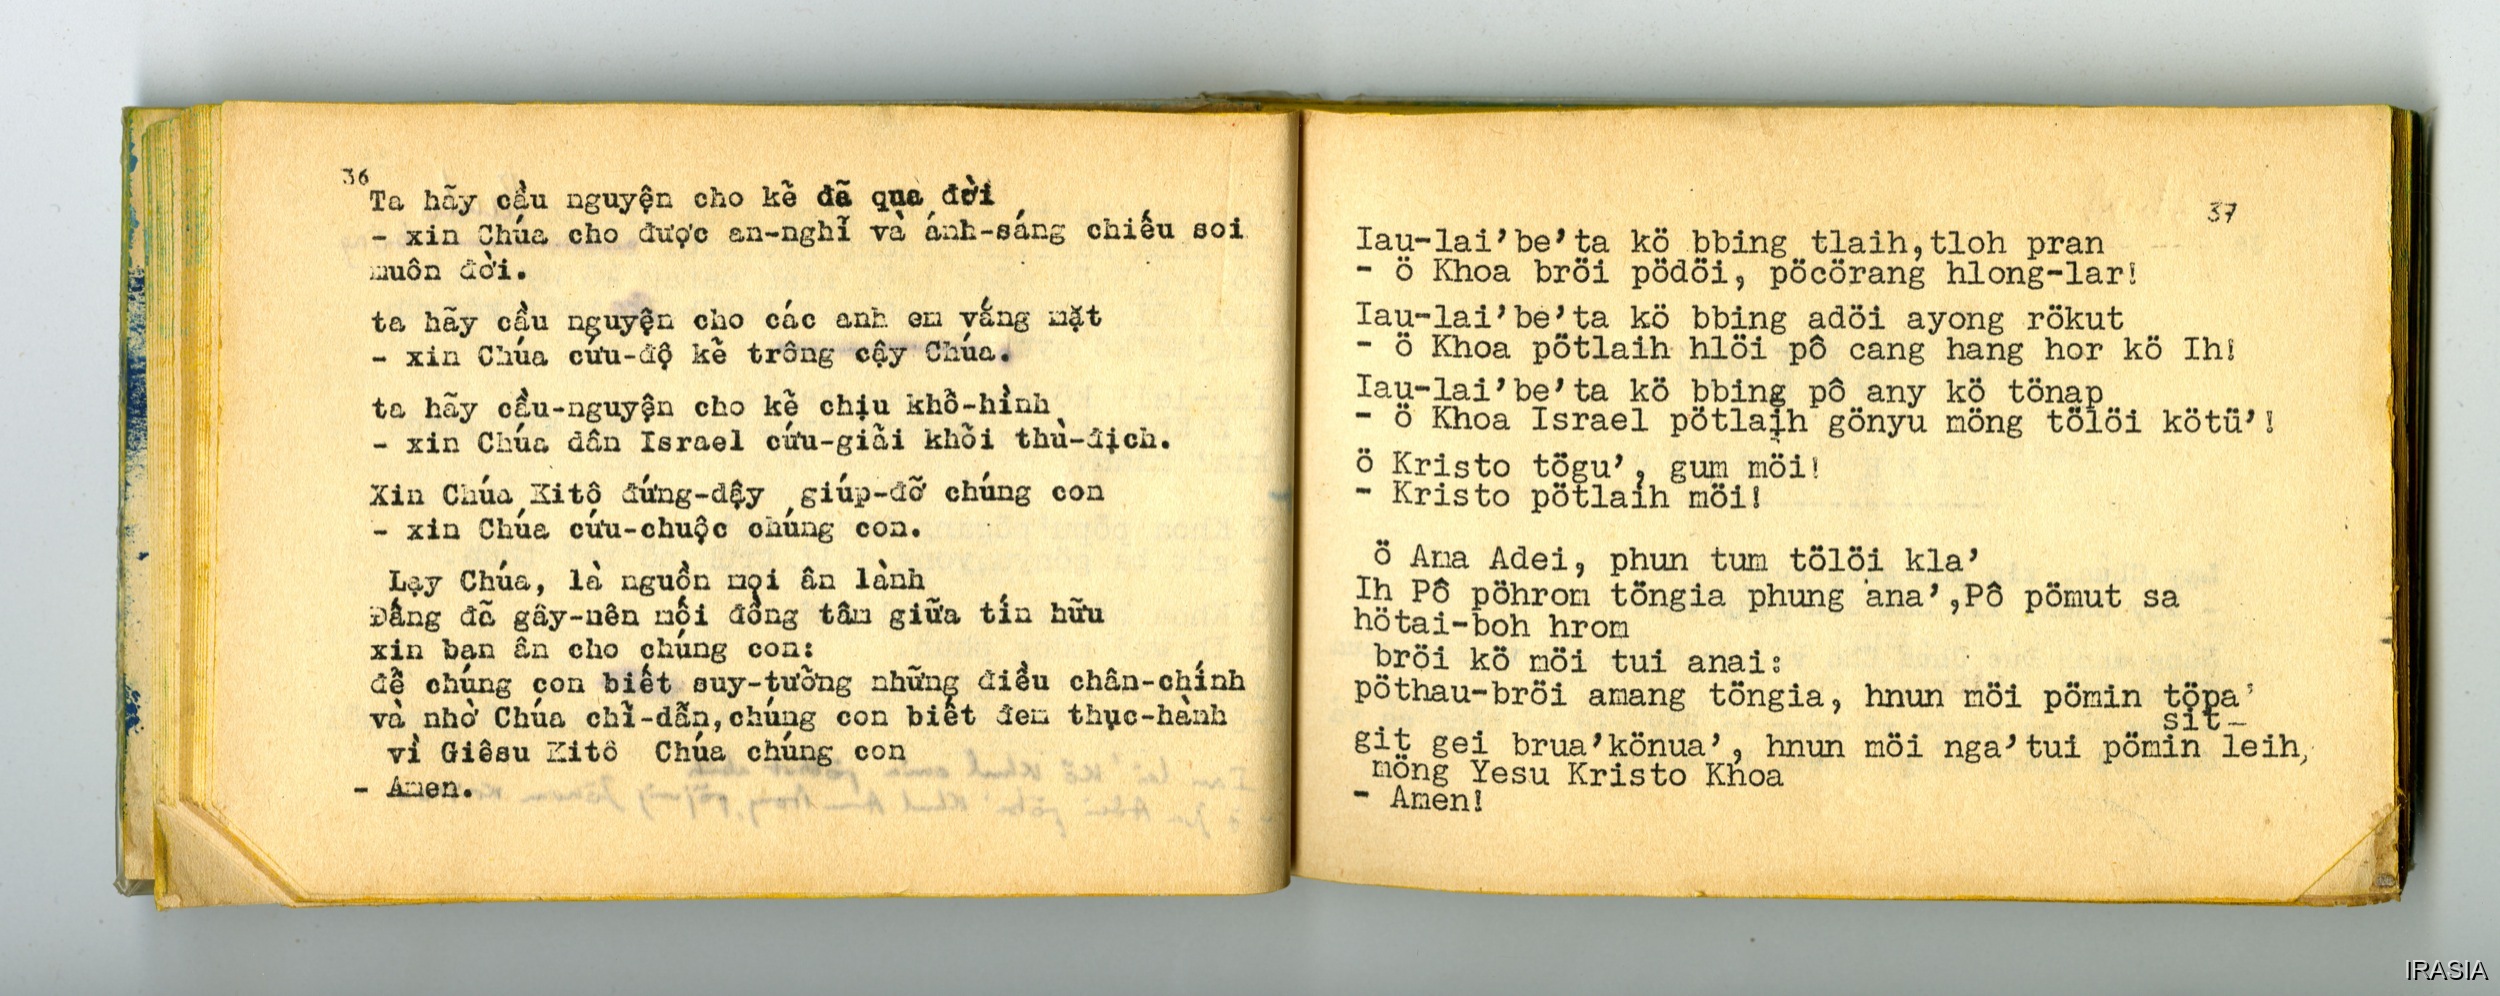 36
Ta hãy cầu nguyện cho kẻ đã qua đời
- xin Chúa cho được an-nghỉ và ánh-sáng chiếu soi
muôn đời.
ta hãy cầu nguyện cho các anh em vắng mặt
- xin Chúa cứu-độ kẻ trông cậy Chúa.
ta hãy cầu-nguyện cho kẻ chịu khổ-hình
- xin Chúa dân Israel cứu-giải khỏi thù-địch.
Xin Chúa Kitô đứng-dậy giúp-đỡ chúng con
- xin Chúa cứu-chuộc chúng con.
Lạy Chúa, là nguồn mọi ân lành
Đấng đã gây-nên mối đồng tâm giữa tín hữu
xin ban ân cho chúng con:
để chúng con biết suy-tưởng những điều chân-chính
và nhờ Chúa chỉ-dẫn,chúng con biết đem thực-hành
vì Giêsu Kitô Chúa chúng con
- Amen.
37
Iau-lai'be'ta kö bbing tlaih,tloh pran
- ö Khoa bröi pödöi, pöcörang hlong-lar!
Iau-lai'be'ta kö bbing adöi ayong rökut
- ö Khoa pötlaih hlöi pô cang hang hor kö Ih!
Iau-lai'be'ta kö bbing pô any kö tönap
- ö Khoa Israel pötlaih gönyu möng tölöi kötü'!
ö Kristo tögu', gum möi!
- Kristo pötlaih möi!
ö Ama Adei, phun tum tölöi kla'
Ih Pô pöhrom töngia phung ana',Pô pömut sa
hötai-boh hrom
bröi kö möi tui anai:
pöthau-bröi amang töngia, hnun möi pömin töpa'
sit-
git gei brua'könua', hnun möi nga'tui pömin leih,
möng Yesu Kristo Khoa
- Amen!
IRASIA